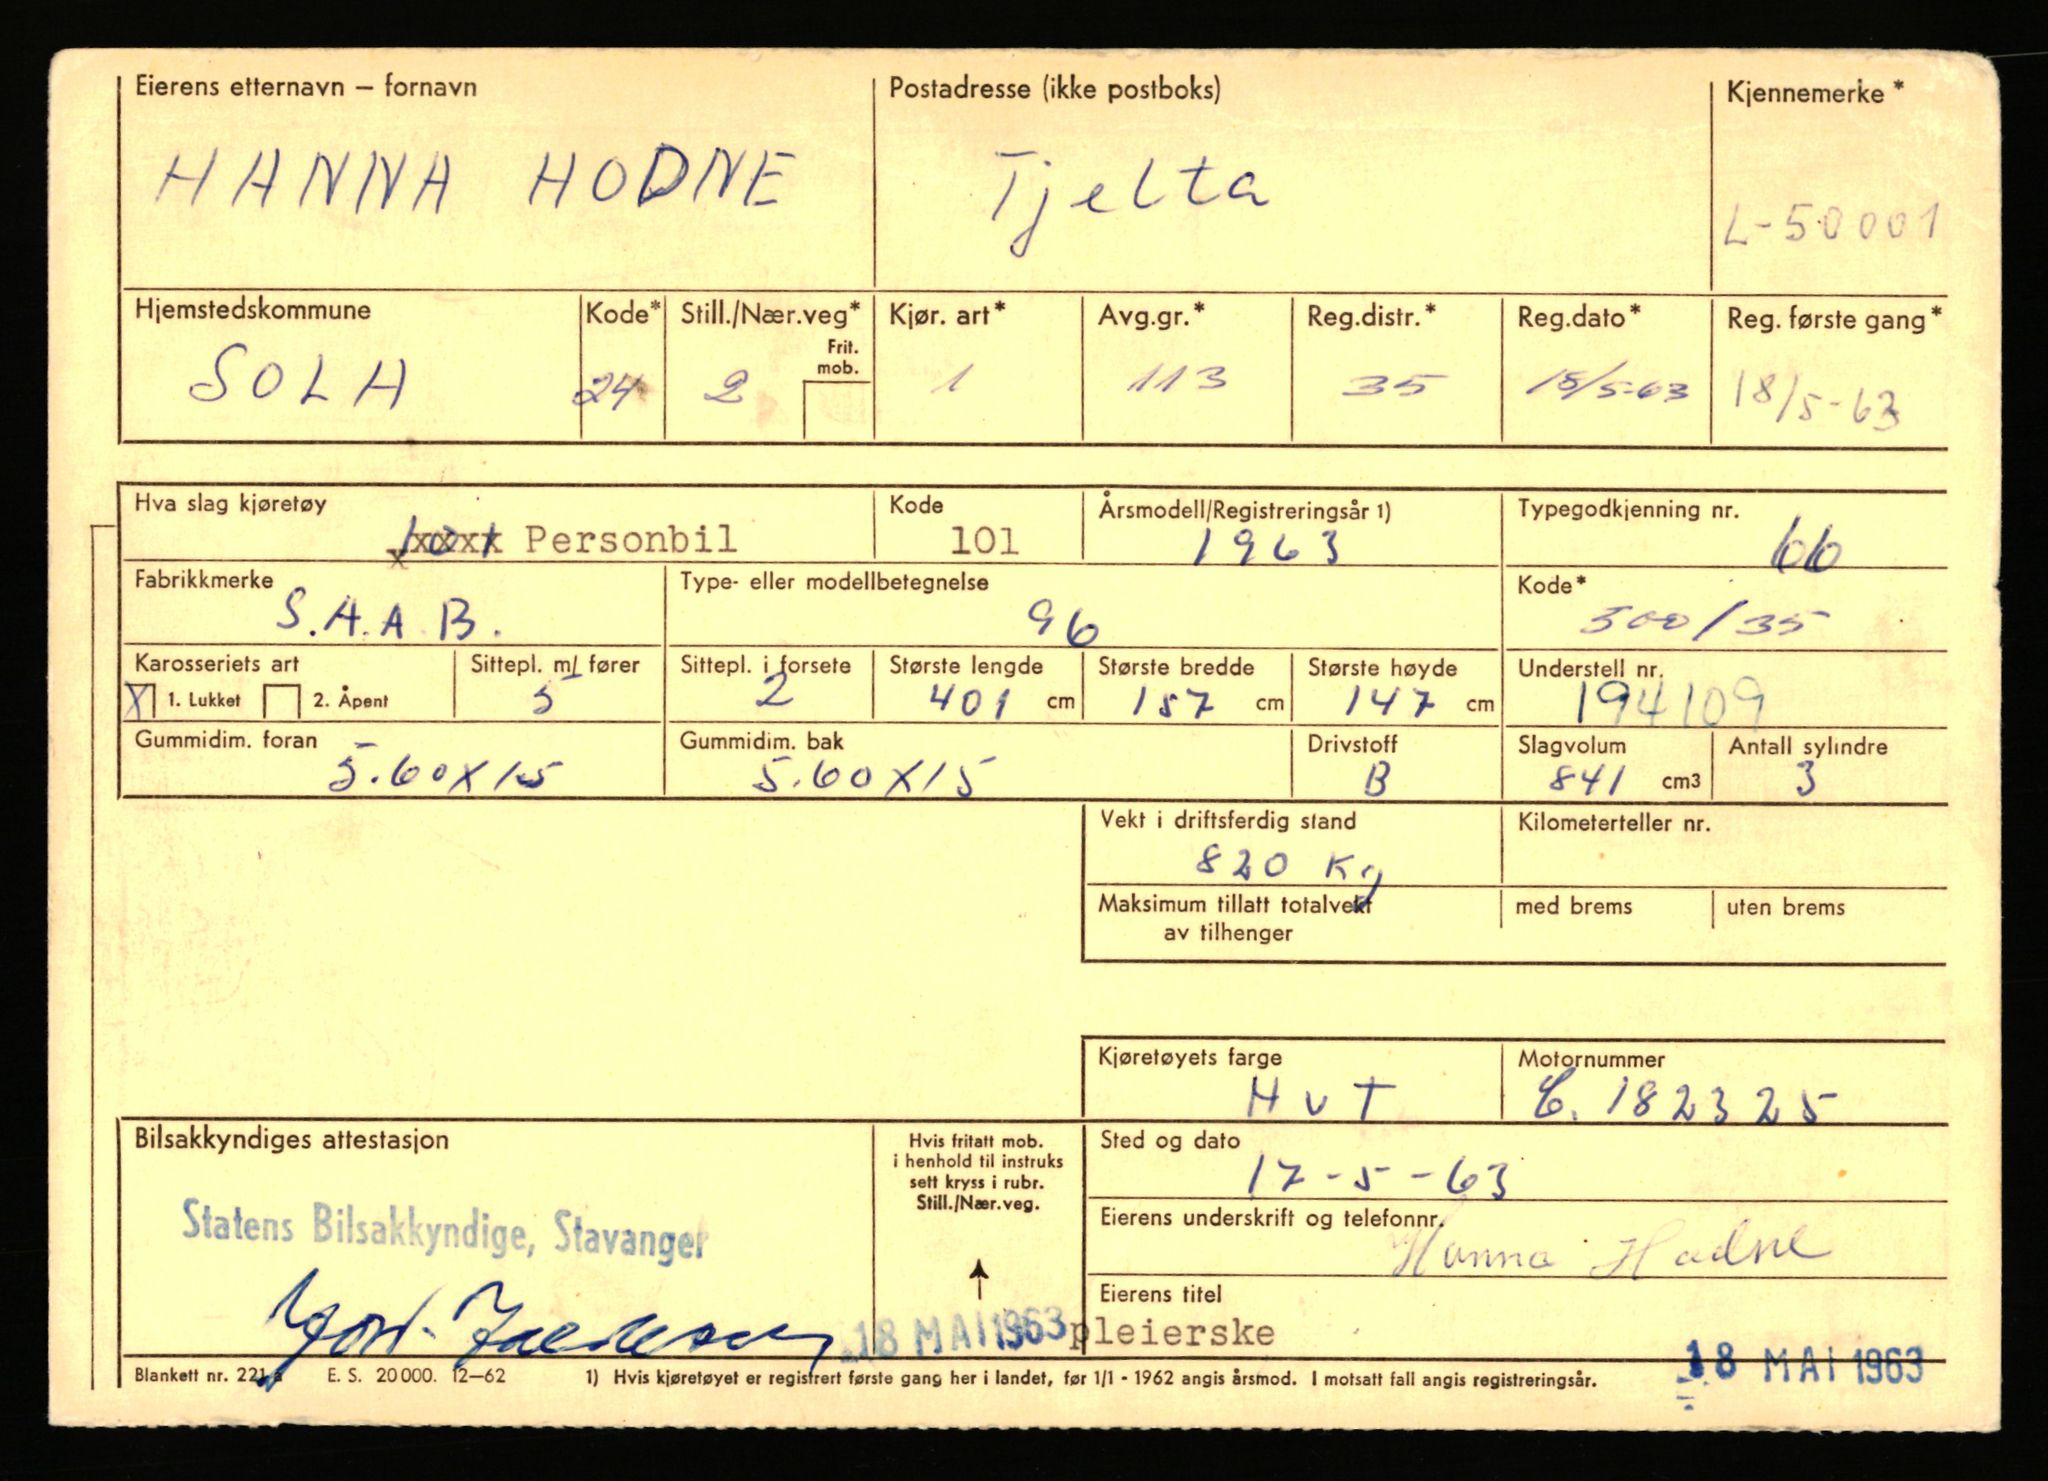 Eierens etternavn – fornavn
Postadresse (ikke postboks)
Kjennemerke *
HANNA HODNE
Tjelta
L-50001
Hjemstedskommune
Kode*
Still./Nær.veg*
Frit. mob.
Kjør. art*
Avg.gr.*
Reg.distr.*
Reg.dato*
Reg. første gang*
SOLA
24
2
1
113
35
18/5-63
18/5-63
Hva slag kjøretøy
Kode
Årsmodell/Registreringsår 1)
Typegodkjenning nr.
101 xxxxx Personbil
101
1963
66
Fabrikkmerke
Type- eller modellbetegnelse
Kode*
S.A.A.B.
96
500/35
Karosseriets art
Sittepl. m/ fører
Sittepl. i forsete
Største lengde
Største bredde
Største høyde
Understell nr.
X 1. Lukket
2. Åpent
5
2
401 cm
157 cm
147 cm
194109
Gummidim. foran
Gummidim. bak
Drivstoff
Slagvolum
Antall sylindre
5.60X15
5.60X15
B
841 cm3
3
Vekt i driftsferdig stand
Kilometerteller nr.
820 Kg
Maksimum tillatt totalvekt
av tilhenger
med brems
uten brems
Kjøretøyets farge
Motornummer
HVT
C. 182325
Bilsakkyndiges attestasjon
Hvis fritatt mob.
i henhold til instruks
sett kryss i rubr.
Still./Nær.veg.
Sted og dato
17-5-63
Statens Bilsakkyndige, Stavanger
Eierens underskrift og telefonnr.
Hanna Hodne
Eierens titel
18 MAI 1963
pleierske
18 MAI 1963
Blankett nr. 221 a
E. S. 20 000. 12–62
1) Hvis kjøretøyet er registrert første gang her i landet, før 1/1 - 1962 angis årsmod. I motsatt fall angis registreringsår.